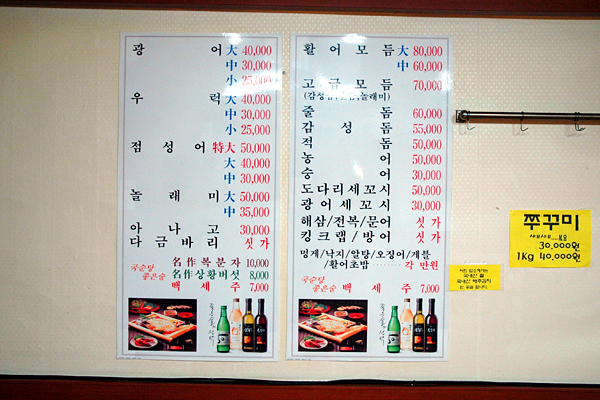 광 어 大 40,000
中 30,000
小 25,000
우 럭 大 40,000
中 30,000
小 25,000
점 성 어 特大 50,000
大 40,000
中 30,000
놀 래 미 大 50,000
中 35,000
아 나 고 30,000
다 금 바 리 싯 가
국순당 좋은술
名作 복 분 자 10,000
名作 상황버섯 8,000
백 세 주 7,000
활 어 모 듬 大 80,000
中 60,000
고 급 모 듬 70,000
줄 돔 60,000
감 성 돔 55,000
적 돔 50,000
농 어 50,000
숭 어 30,000
도다리세꼬시 50,000
광 어 세 꼬 시 30,000
해삼/전복/문어 싯 가
킹크랩/방어 싯 가
멍게/낙지/알탕/오징어/계불
/활어초밥 ········ 각 만원
국순당 좋은술
백 세 주 7,000
쭈꾸미
30,000원
1Kg 40,000원